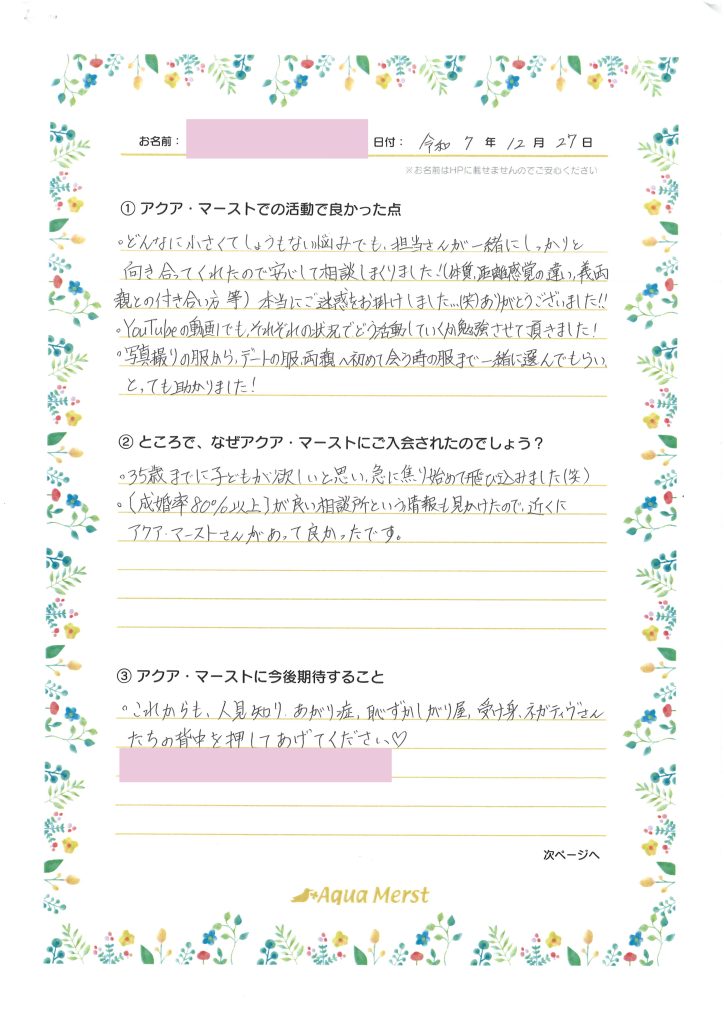 お名前： 日付： 令和 7 年 12 月 27 日
※お名前はHPに載せませんのでご安心ください
① アクア・マーストでの活動で良かった点
。どんなに小さくてしょうもない悩みでも、担当さんが一緒にしっかりと
向き合ってくれたので安心して相談しまくりました!(体質、距離感覚の違い、義両
親との付き合い方 等) 本当にご迷惑をお掛けしました...(笑)ありがとうございました!!
。YouTubeの動画でも、それぞれの状況でどう活動していくか勉強させて頂きました!
。写真撮りの服から、デートの服、両親へ初めて会う時の服まで一緒に選んでもらい、
とっても助かりました!
② ところで、なぜアクア・マーストにご入会されたのでしょう？
。35歳までに子どもが欲しいと思い、急に焦り始めて飛び込みました(笑)
。[成婚率80%以上]が良い相談所という情報も見かけたので、近くに
アクア・マーストさんがあって良かったです。
③ アクア・マーストに今後期待すること
。これからも、人見知り、あがり症、恥ずかしがり屋、受け身、ネガティヴさん
たちの背中を押してあげてください♡
次ページへ
Aqua Merst